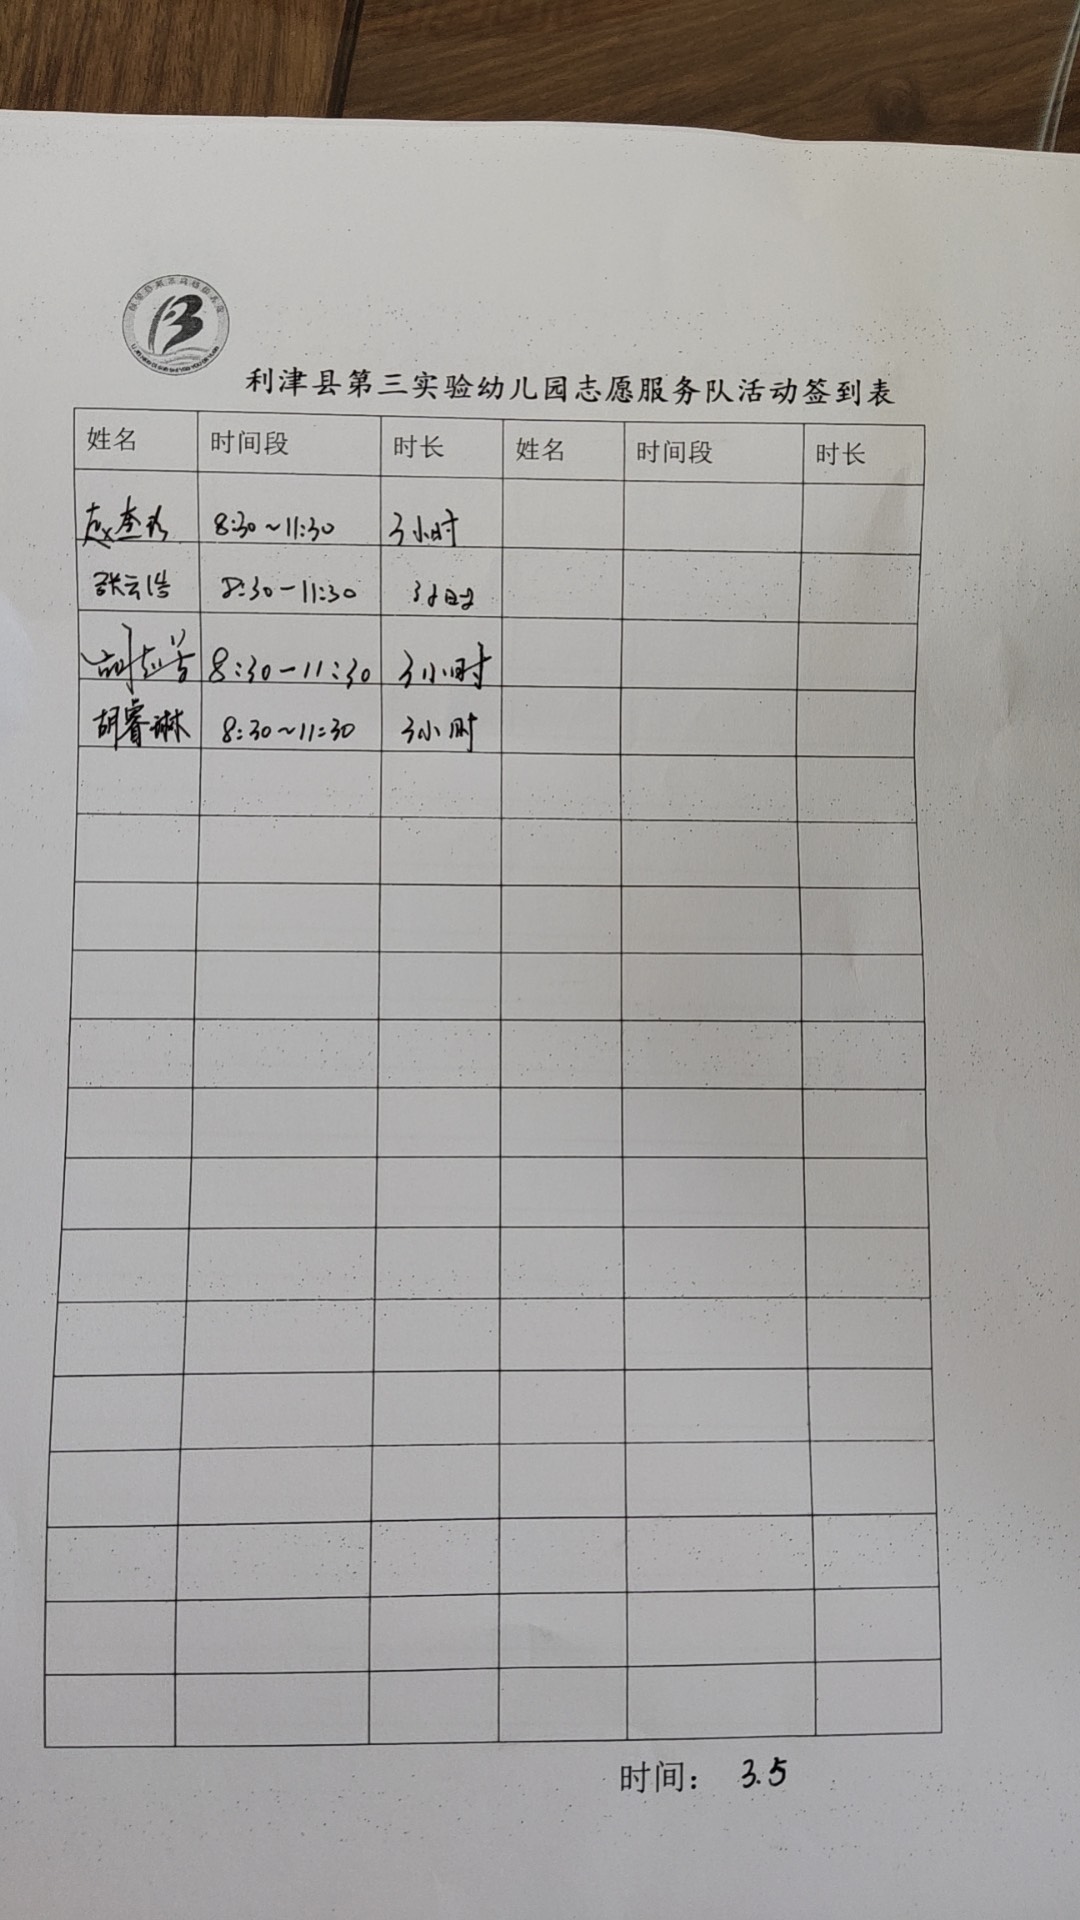 利津县第三实验幼儿园志愿服务队活动签到表
姓名 时间段 时长 姓名 时间段 时长
赵 8:30~11:30 3小时
张云浩 8:30-11:30 3小时
胡 8:30-11:30 3小时
胡睿琳 8:30~11:30 3小时
时间： 3.5